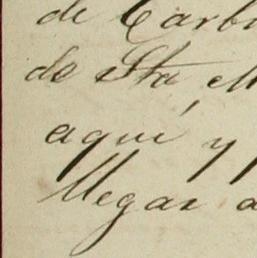 de Carb
de Sta, M
aqui y
llegar a